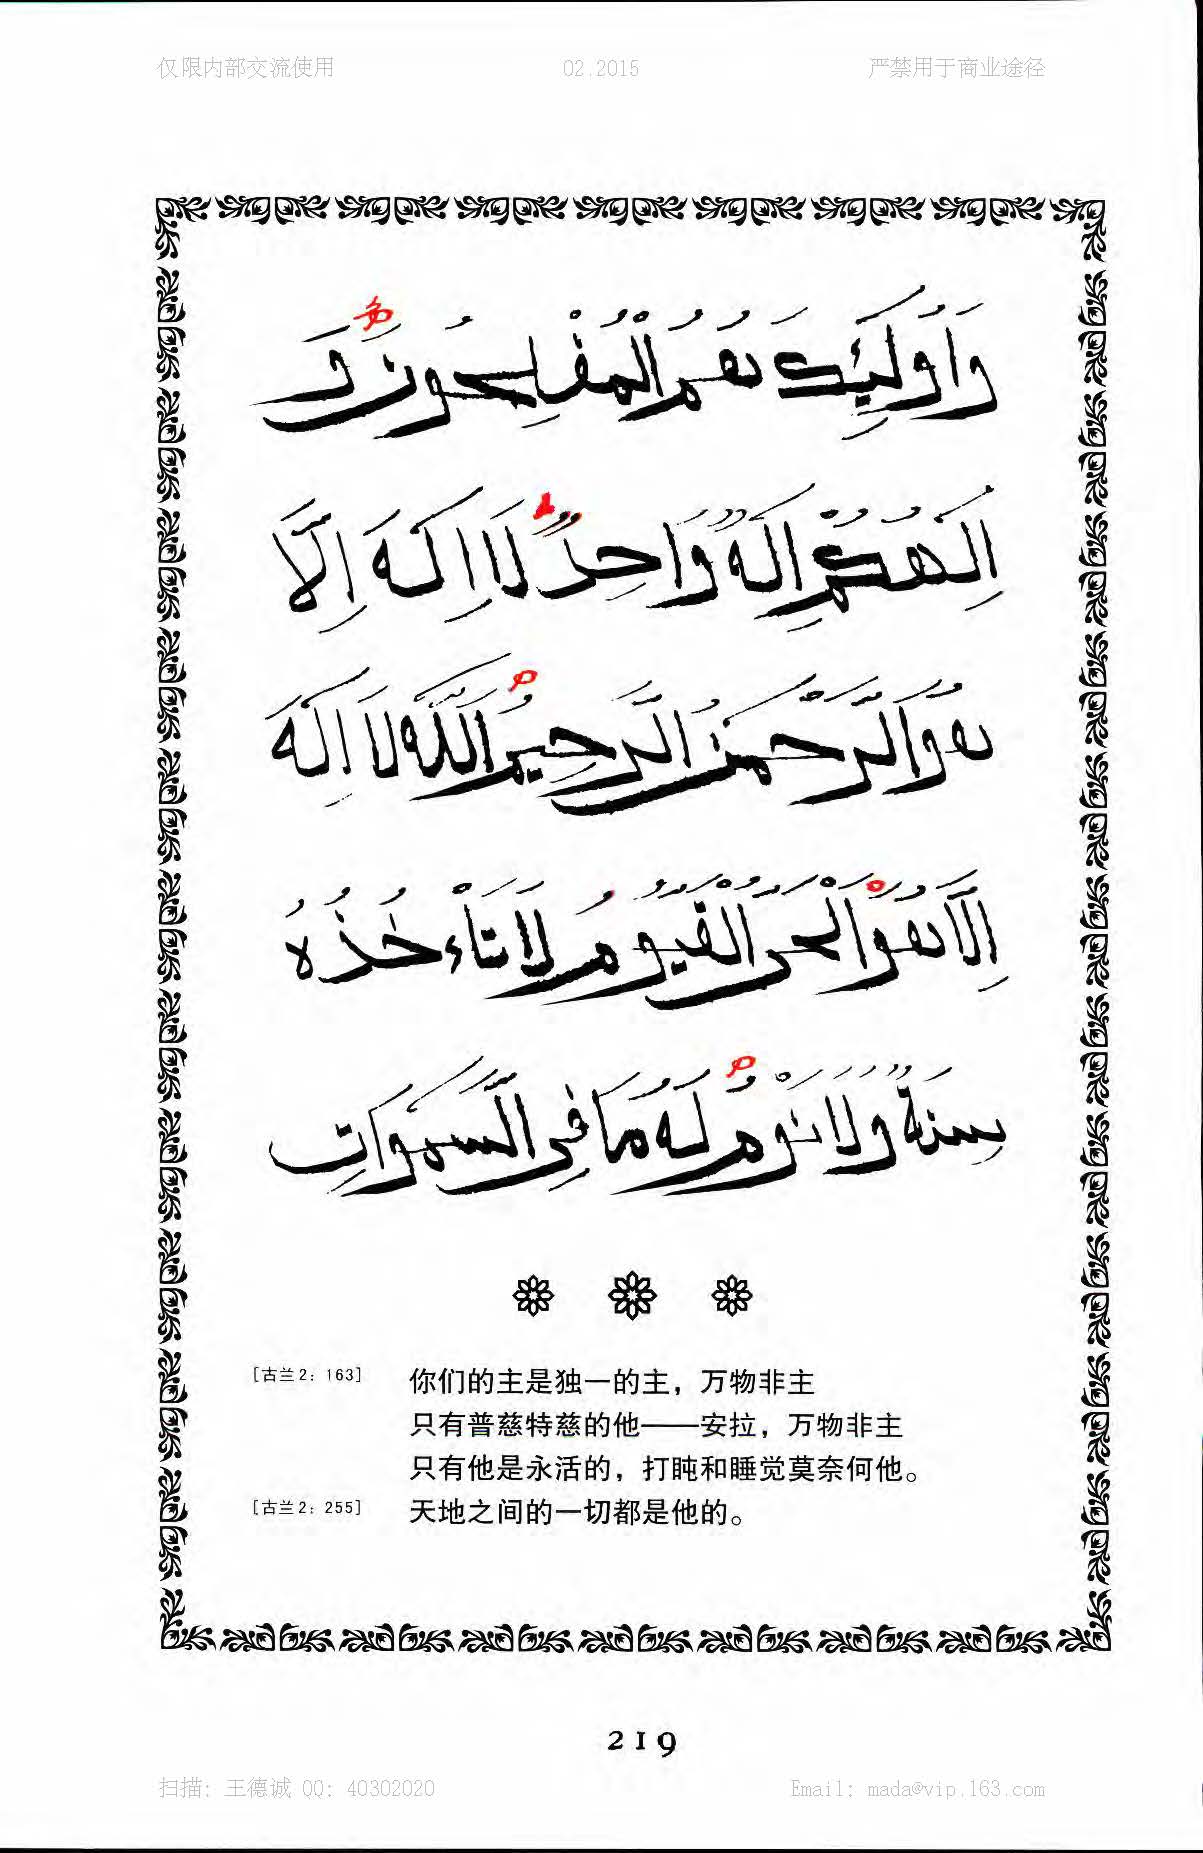 仅限内部交流使用 02.2015 严禁用于商业途径
وَأُولَٰئِكَ هُمُ الْمُفْلِحُونَ وَ
إِلَٰهُكُمْ إِلَٰهٌ وَاحِدٌ لَا إِلَٰهَ إِلَّا
هُوَ الرَّحْمَٰنُ الرَّحِيمُ اللَّهُ لَا إِلَٰهَ
إِلَّا هُوَ الْحَيُّ الْقَيُّومُ لَا تَأْخُذُهُ
سِنَةٌ وَلَا نَوْمٌ لَهُ مَا فِي السَّمَٰوَاتِ
[古兰2: 163] 你们的主是独一的主，万物非主
只有普慈特慈的他——安拉，万物非主
只有他是永活的，打盹和睡觉莫奈何他。
[古兰2: 255] 天地之间的一切都是他的。
219
扫描: 王德诚 QQ: 40302020 Email: mada@vip.163.com